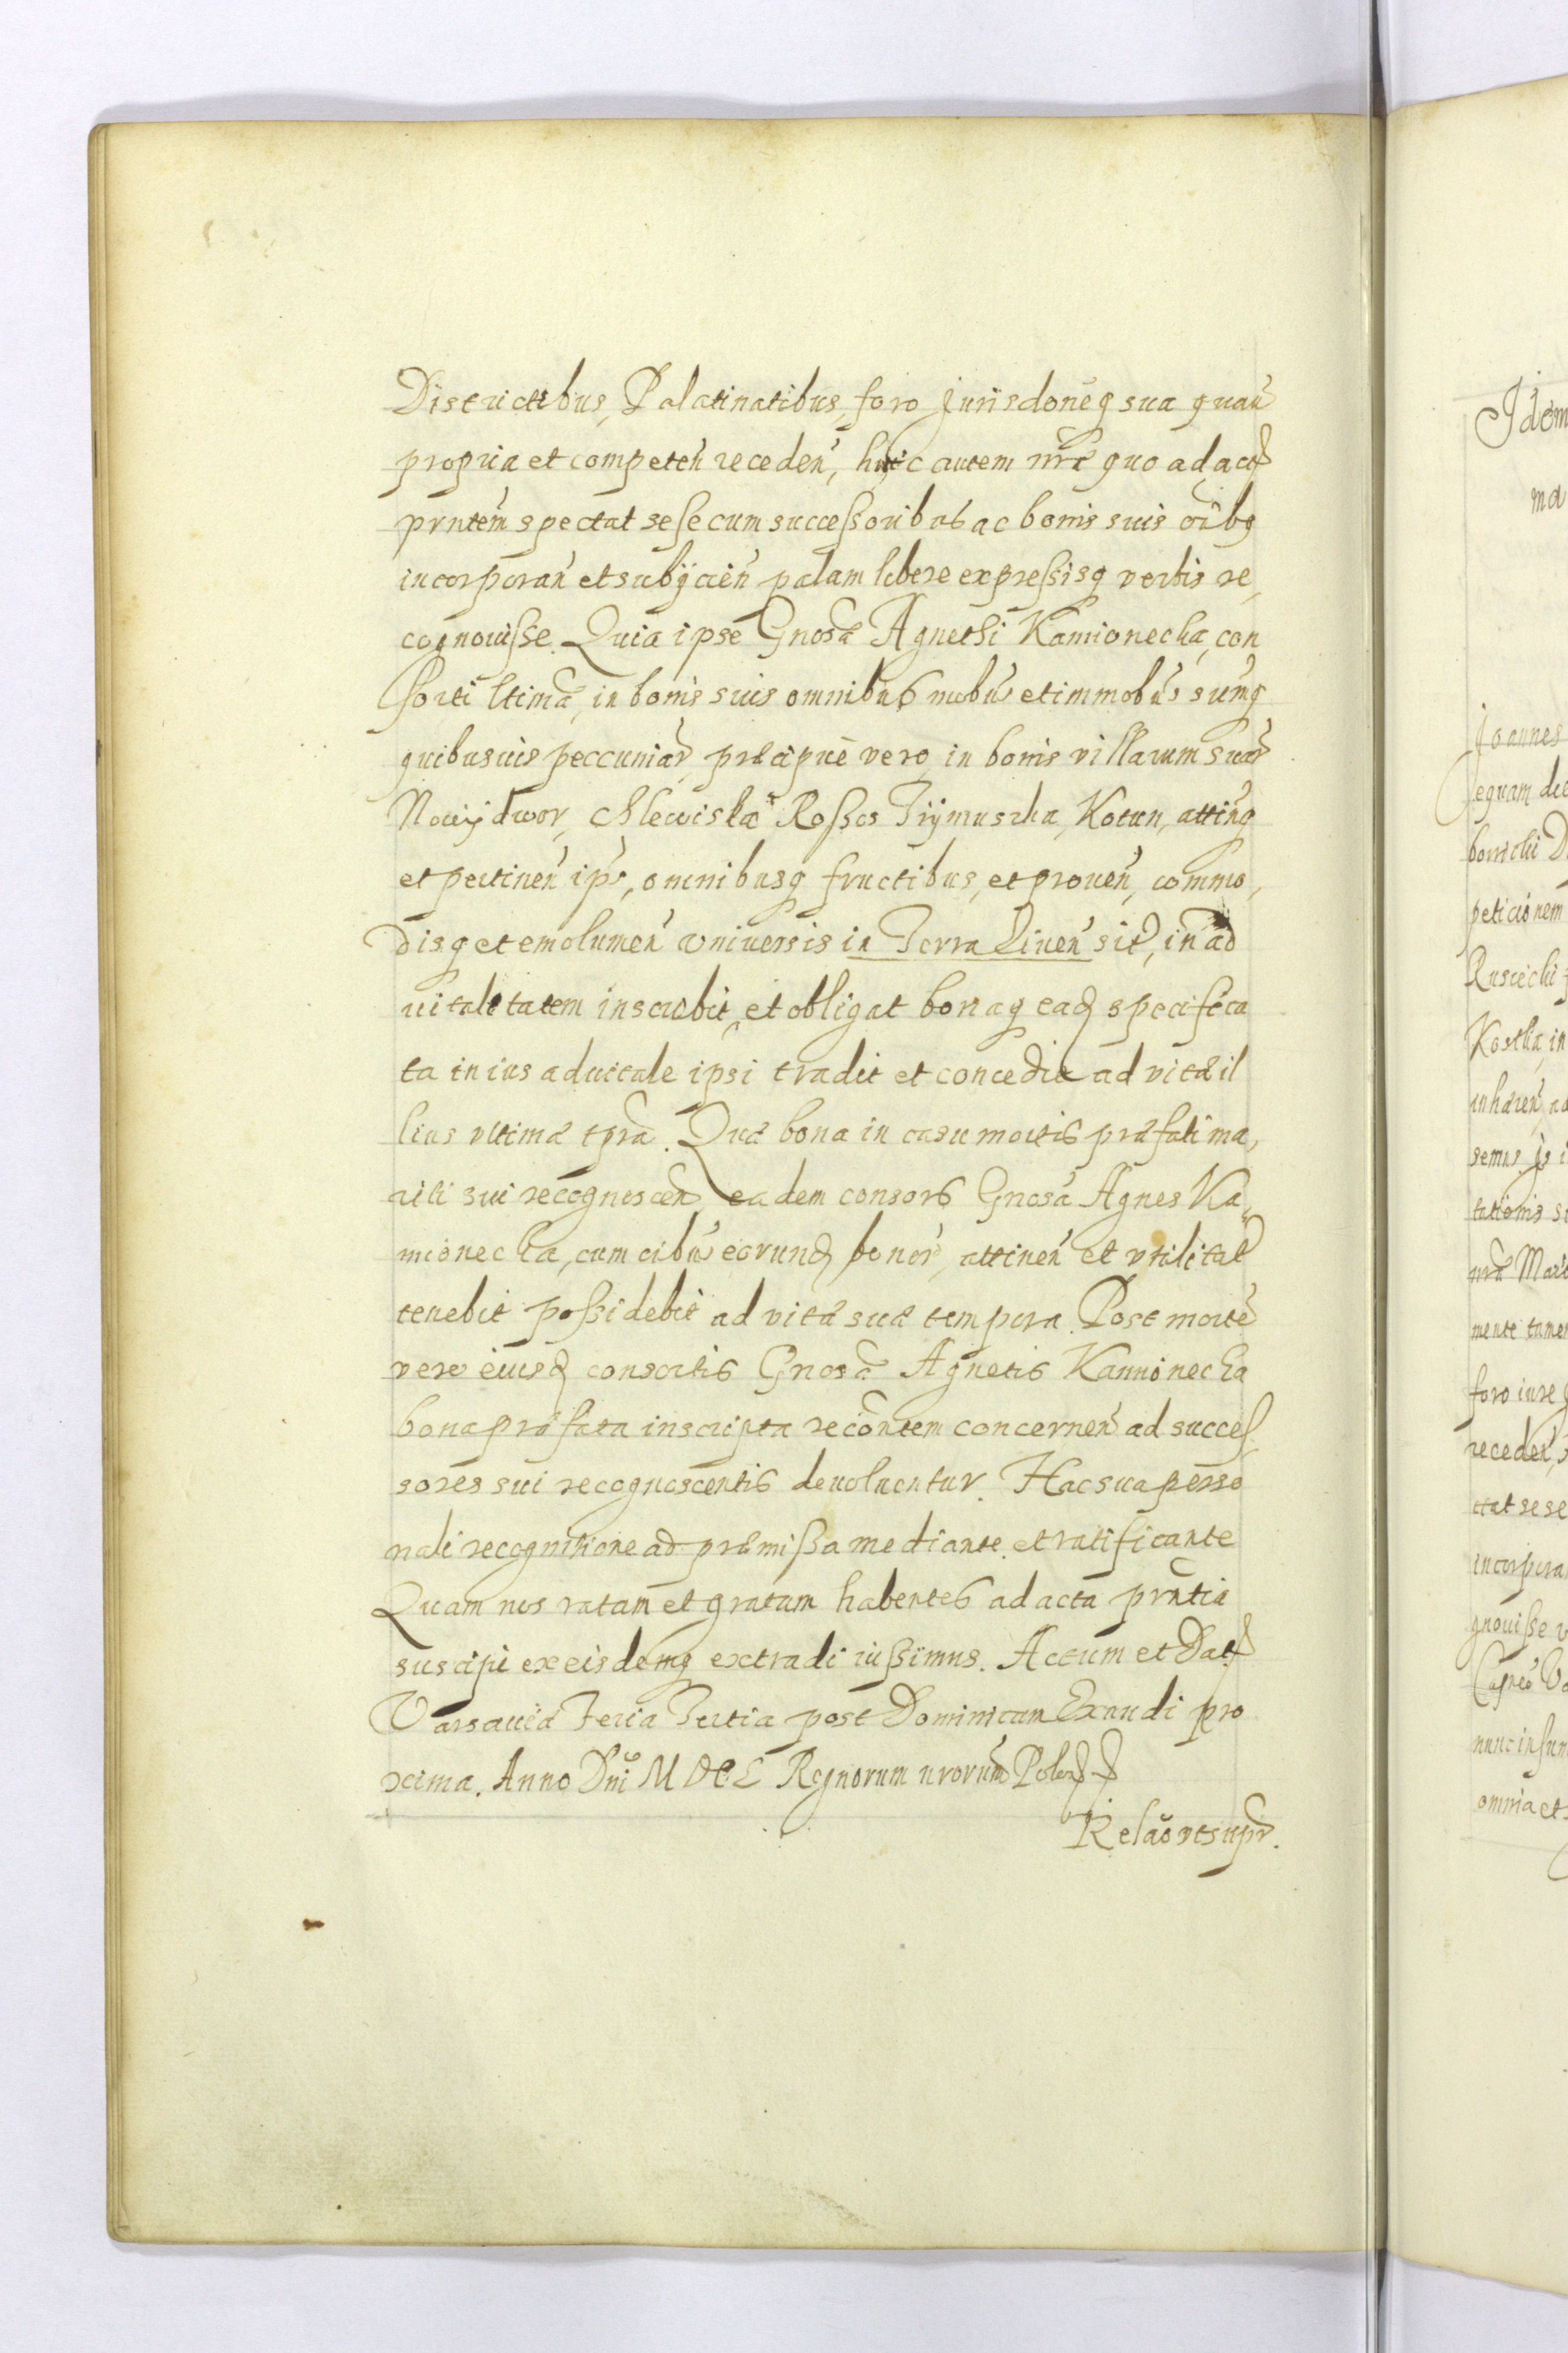 Districtibus, Palatinatibus, foro Jurisdonẽq sua quau᷑
propria et competeñ receden̉, huic autem nrẽ quo ad act
prntem̉ spectat sese cum successoribus ac bonis suis oĩbq
incorporan̉ et subijcien̉ palam libere expressisq verbis re,
cognouisse. Quia ipse Gnosæ Agnethi Kamionecka, con
sorti ltimæ, in bonis suis omnibus mobus̉ et immobus̉ sum̉q
quibusuis peccuniar̉, præcipuè vero in bonis villarum suar̉
Nowÿdwor, Chlewiska Rossos Trÿmuszka, Kotun, attin̉q
et pertinen̉ ips̉, omnibusq fructibus, et prouen̉, commo,
disq et emolumen̉ vniuersis in Terra Liuen̉ sit̉, in ad
uitalitatem inscribit, et obligat bonaq ead specifica
ta in ius aduitale ipsi tradit et concedit ad vitæ il
lius vltimæ tpra. Quæ bona in casu mortis præfati ma,
riti sui recognoscen̉ eadem consors Gnosa Agnes Ka,
mionecka, cum oibus̉ eorund bonor̉, attinen̉ et vtilitat̉
tenebit possidebit ad vitæ suæ tempora. Post mortẽ
vero eiusd consortis Gnosæ Agnetis Kamionecka
bona præfata inscripta recõntem concernen̉ ad succes
sores sui recognoscentis deuoluentur. Hac sua perso
nali recognitione ad præmissa mediante et ratificante
Quam nos ratam et gratam habentes ad acta prñtia
suscipi ex eisdemq extradi iussimus. Actum et Dat
Varsauiæ Feria Tertia post Dominicam Exaudi pro
xima. Anno Dnĩ MDCL Regnorum nrorum̉ Polo
Relaõ vt supr̉.
Idem
ma
Joannes
borscki D
peticionem
Kostka, in
inhæren̉ ad
mente tamen
foro iure
receden̉,
ctat sese
incorpora
gnouisse
nunc in sum
omnia et